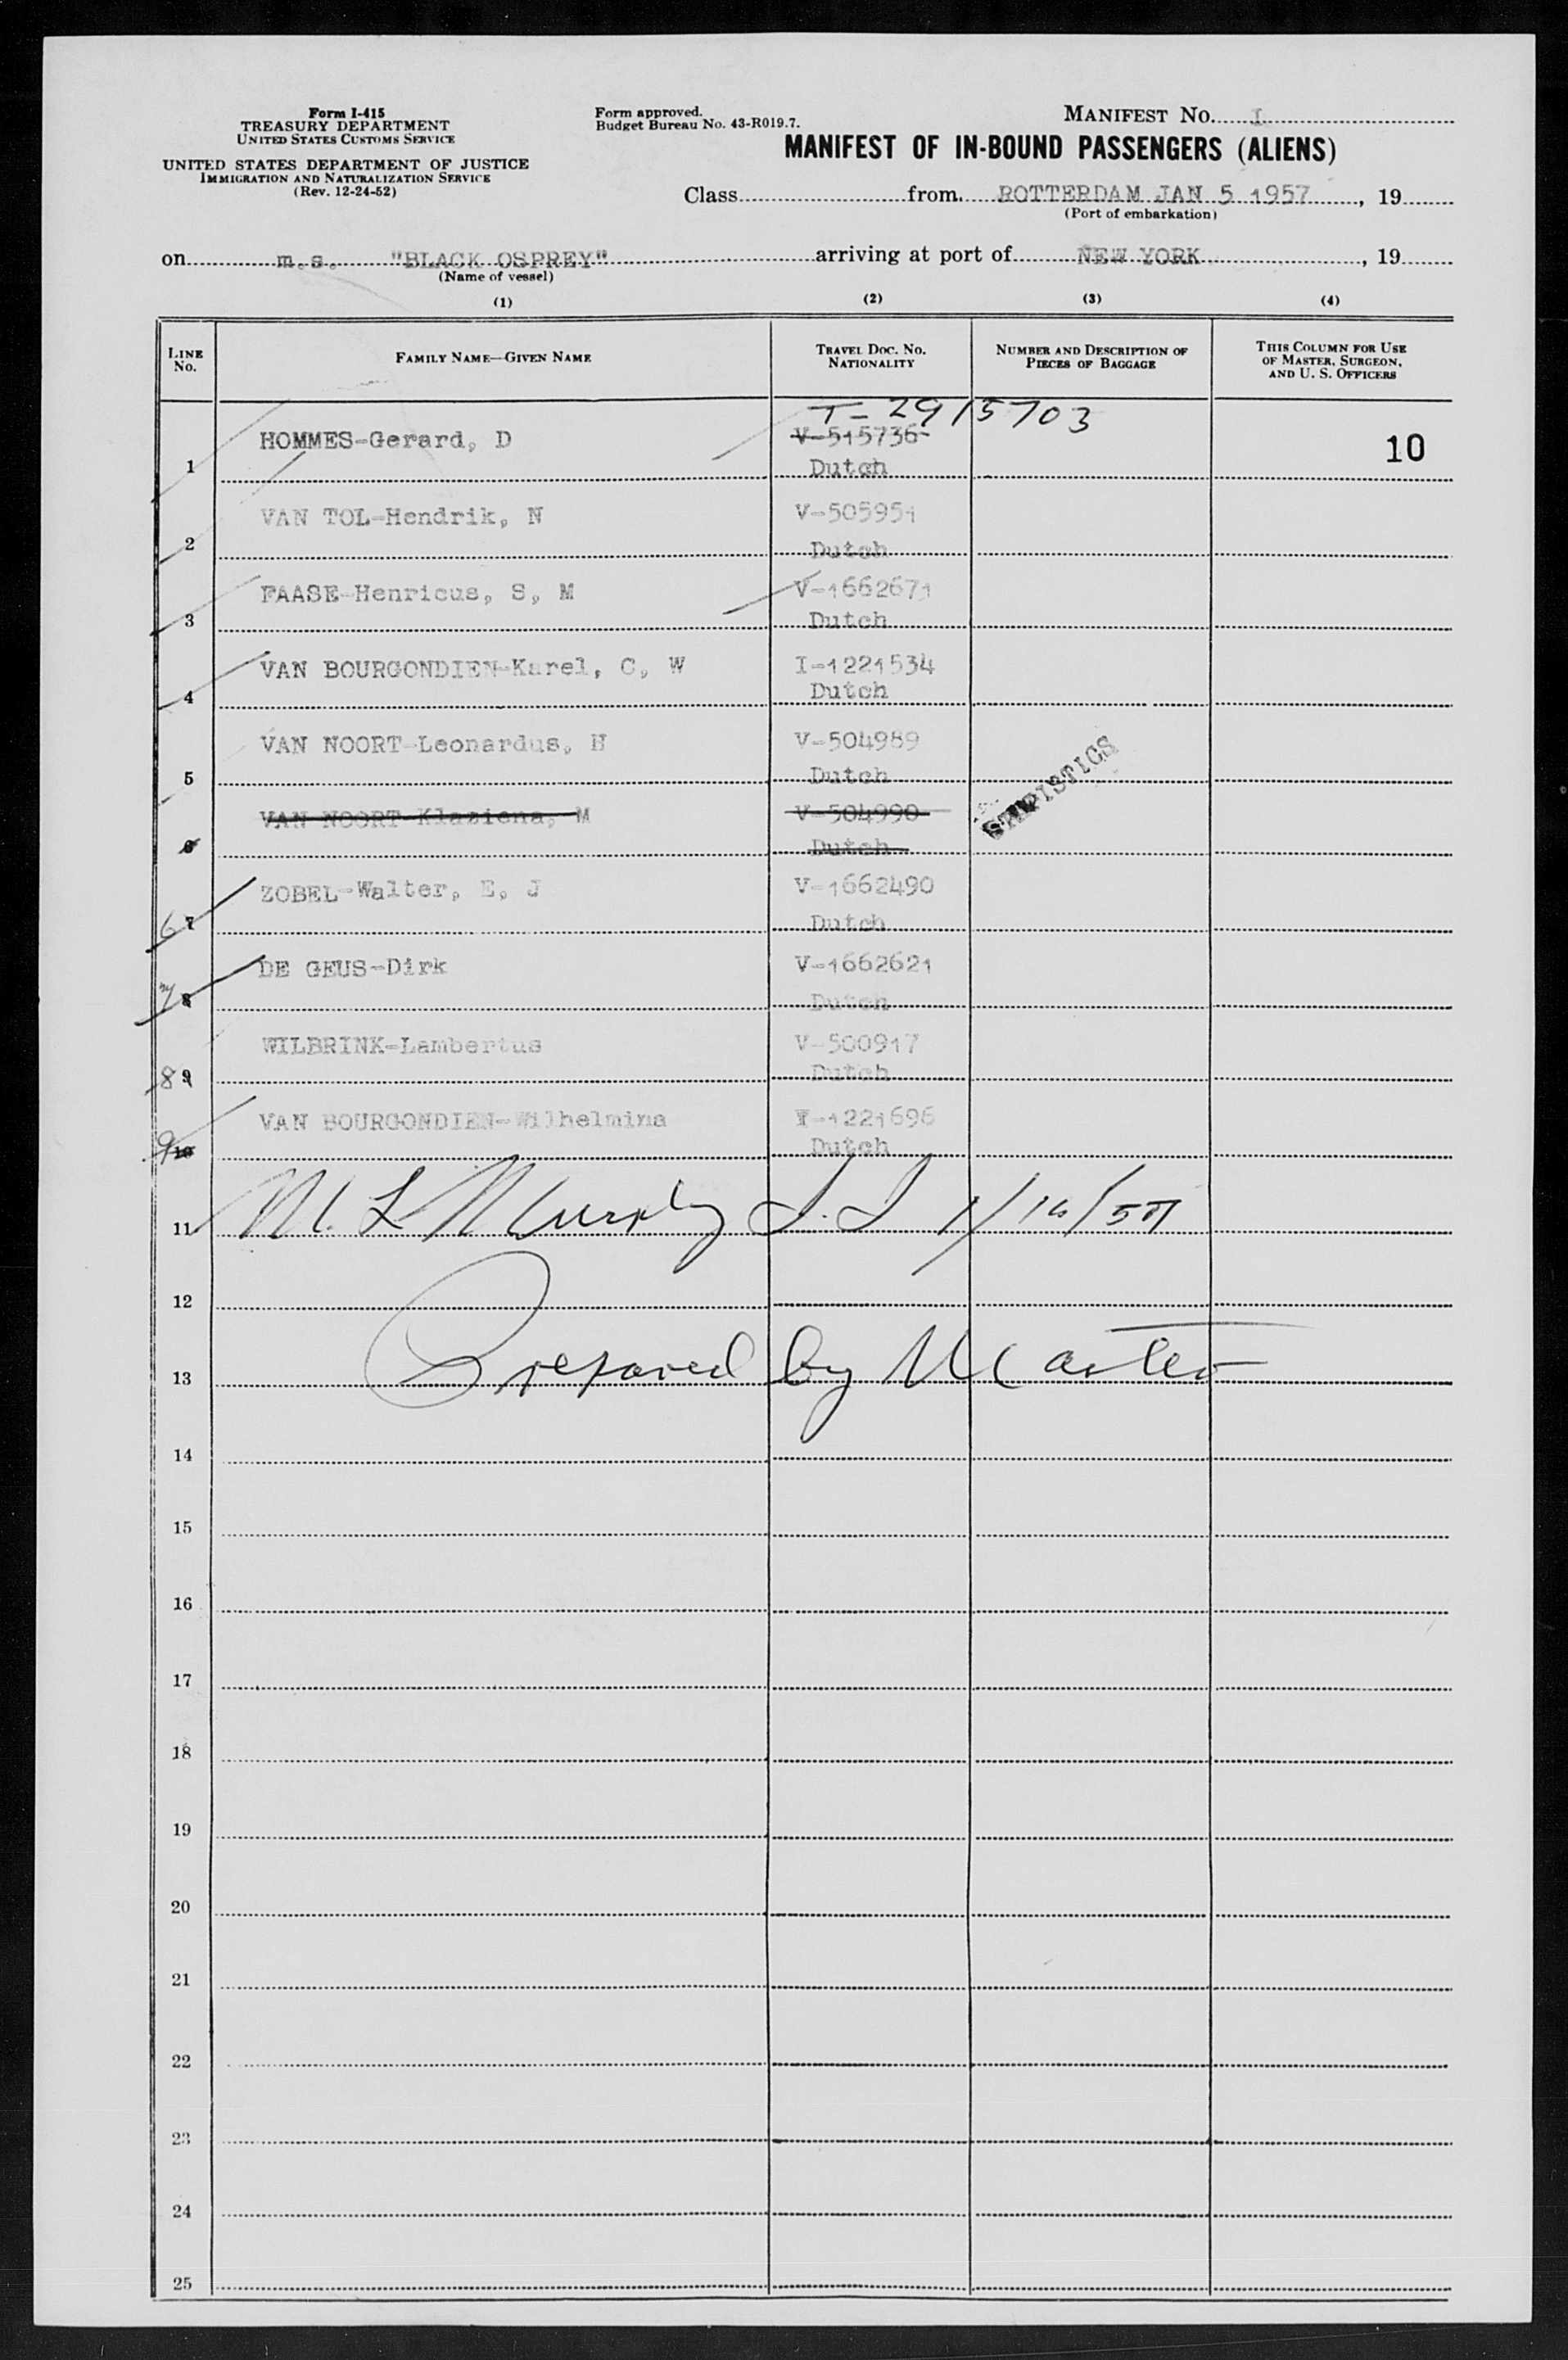 Form I-415
TREASURY DEPARTMENT
UNITED STATES CUSTOMS SERVICE
UNITED STATES DEPARTMENT OF JUSTICE
IMMIGRATION AND NATURALIZATION SERVICE
(Rev. 12-24-52)
Form approved.
Budget Bureau No. 43-R019.7.
MANIFEST NO. I
MANIFEST OF IN-BOUND PASSENGERS (ALIENS)
Class from ROTTERDAM JAN 5 1957, 19
(Port of embarkation)
on m.s. "BLACK OSPREY" arriving at port of NEW YORK, 19
(Name of vessel)
(1) (2) (3) (4)
LINE NO. FAMILY NAME—GIVEN NAME TRAVEL DOC. NO. NATIONALITY NUMBER AND DESCRIPTION OF PIECES OF BAGGAGE THIS COLUMN FOR USE OF MASTER, SURGEON, AND U. S. OFFICERS
T-2915703
1 HOMMES-Gerard, D V-515736 10
Dutch
2 VAN TOL-Hendrik, N V-505951
Dutch
3 FAASE-Henricus, S, M V-1662671
Dutch
4 VAN BOURGONDIEN-Karel, C, W I-1221534
Dutch
5 VAN NOORT-Leonardus, H V-504989
Dutch
STATISTICS
6 VAN NOORT-Klaziena, M V-504990
Dutch
6 7 ZOBEL-Walter, E, J V-1662490
Dutch
7 8 DE GEUS-Dirk V-1662621
Dutch
8 9 WILBRINK-Lambertus V-500917
Dutch
9 10 VAN BOURGONDIEN-Wilhelmina I-1221696
Dutch
11 M. L Murphy I.I 1/16/57
12
13 Prepared by Master
14
15
16
17
18
19
20
21
22
23
24
25